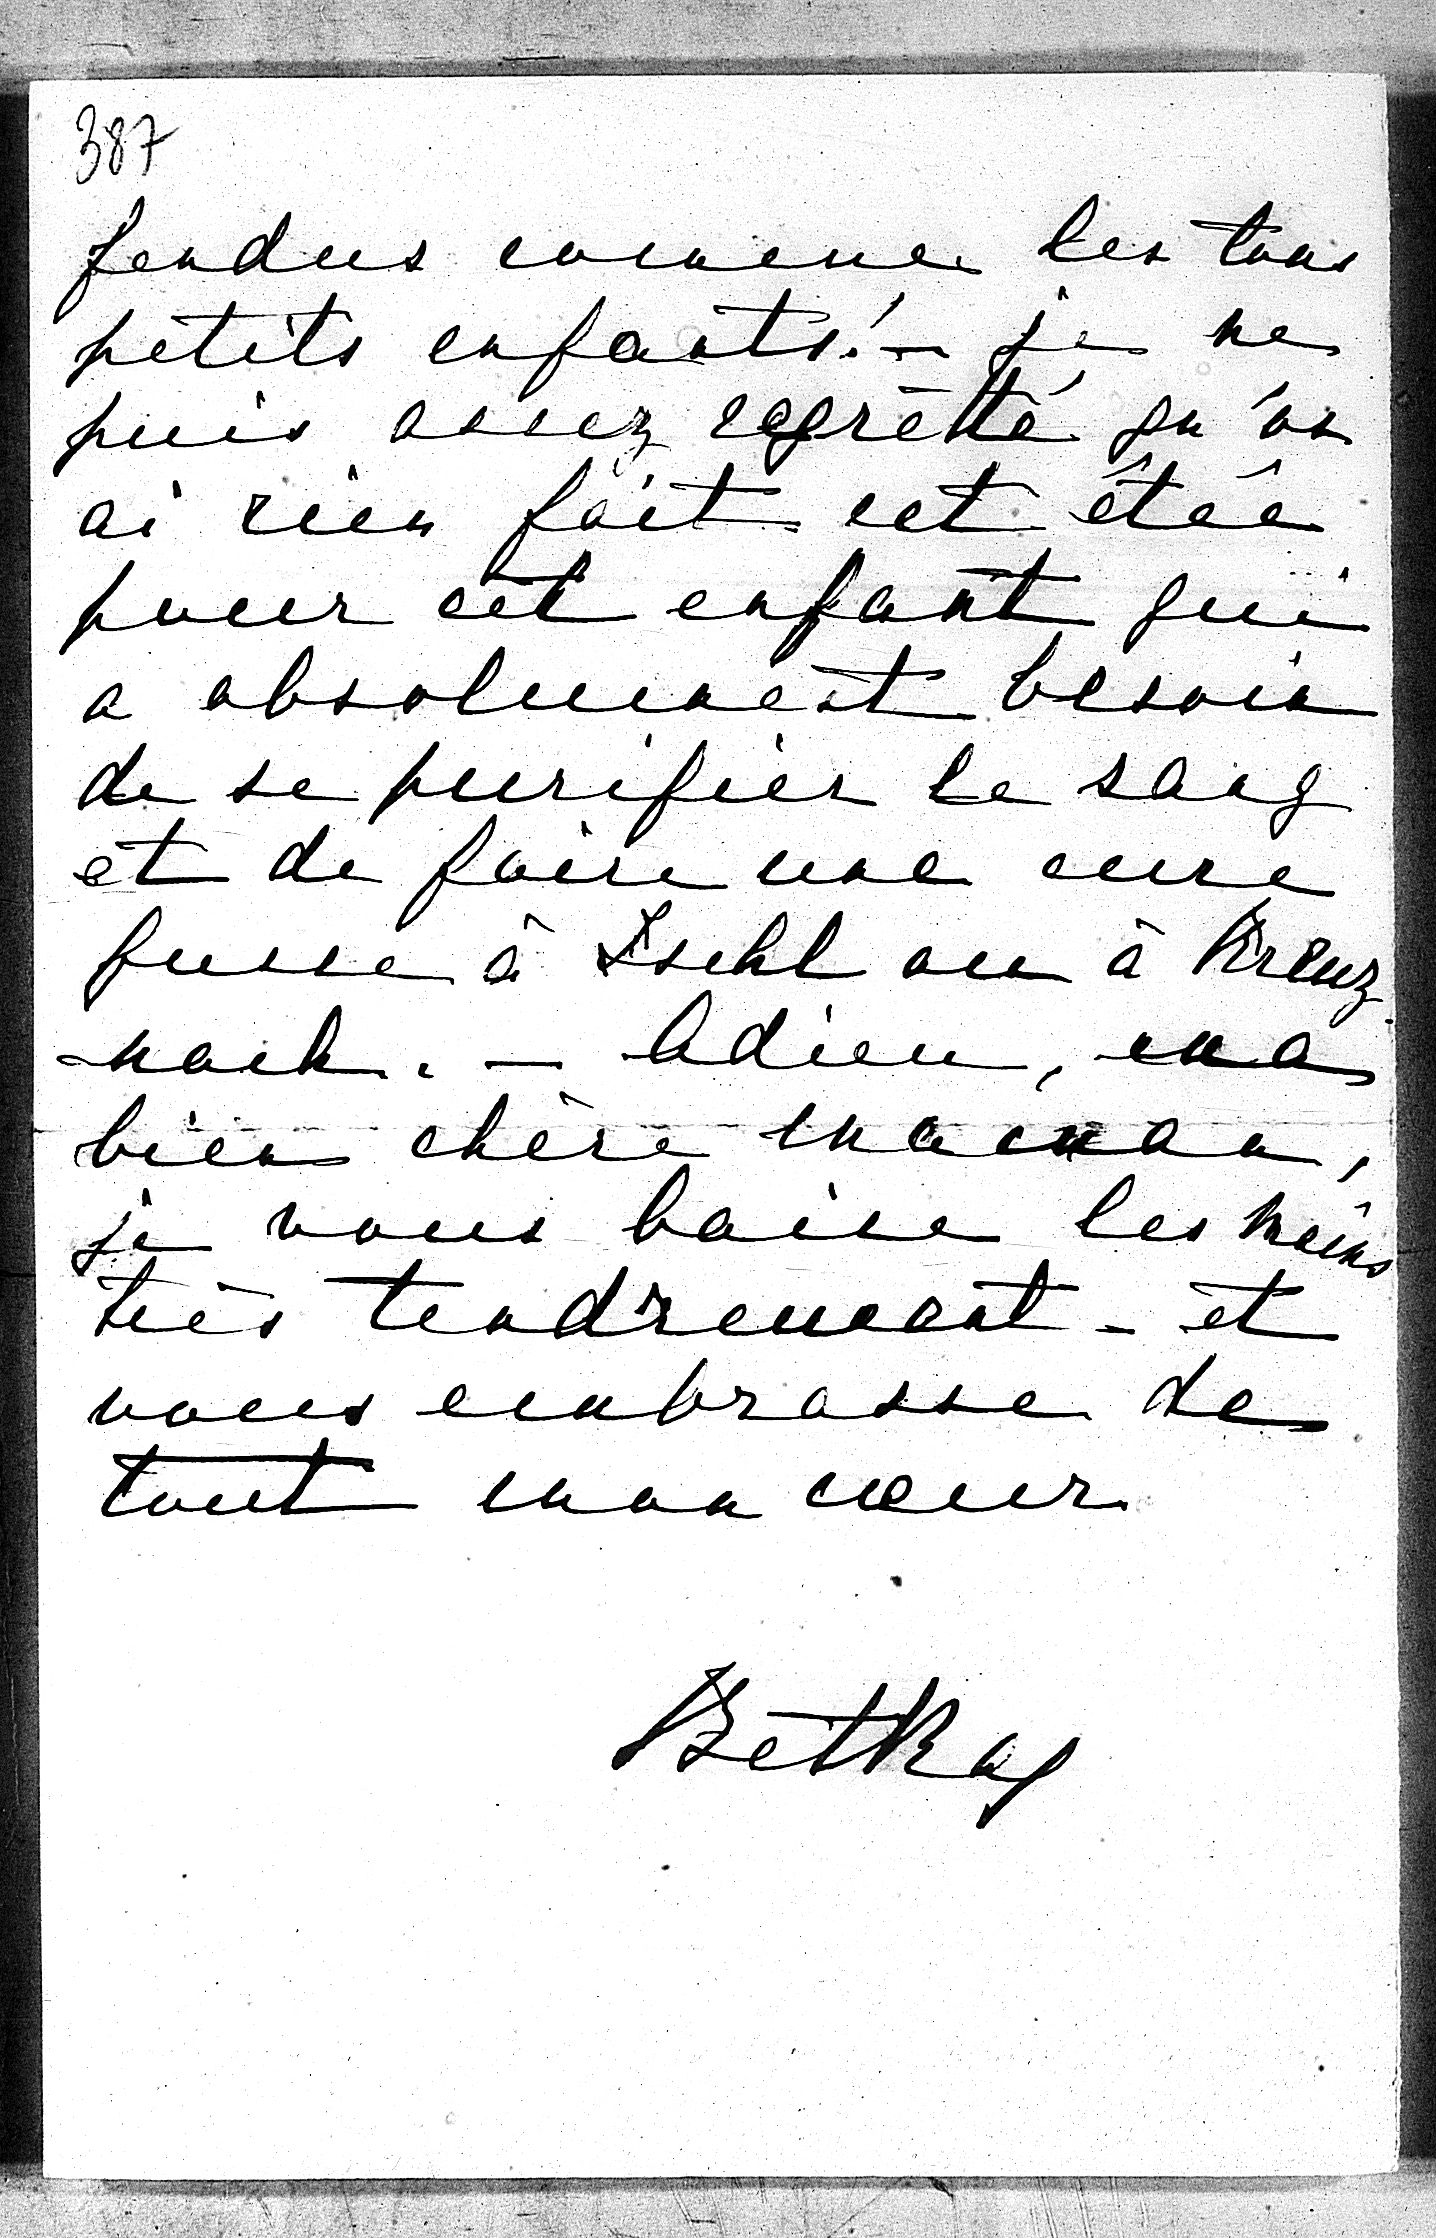 387
fendus comme les tous
petits enfants! — je ne
puis assez regrètté qu'on
ai rien fait cet étée
pour cet enfant qui
a absolument besoin
de se purifier le sang
et de faire une cure
fusse à Ischl ou à Kreuz
nach. — Adieu, ma
bien chère maman,
je vous baise les mains
très tendrement - et
vous embrasse de
tout mon cœur.
Betka